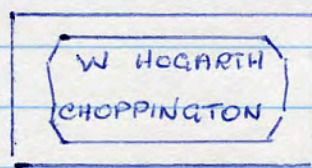 W HOGARTH
CHOPPINGTON